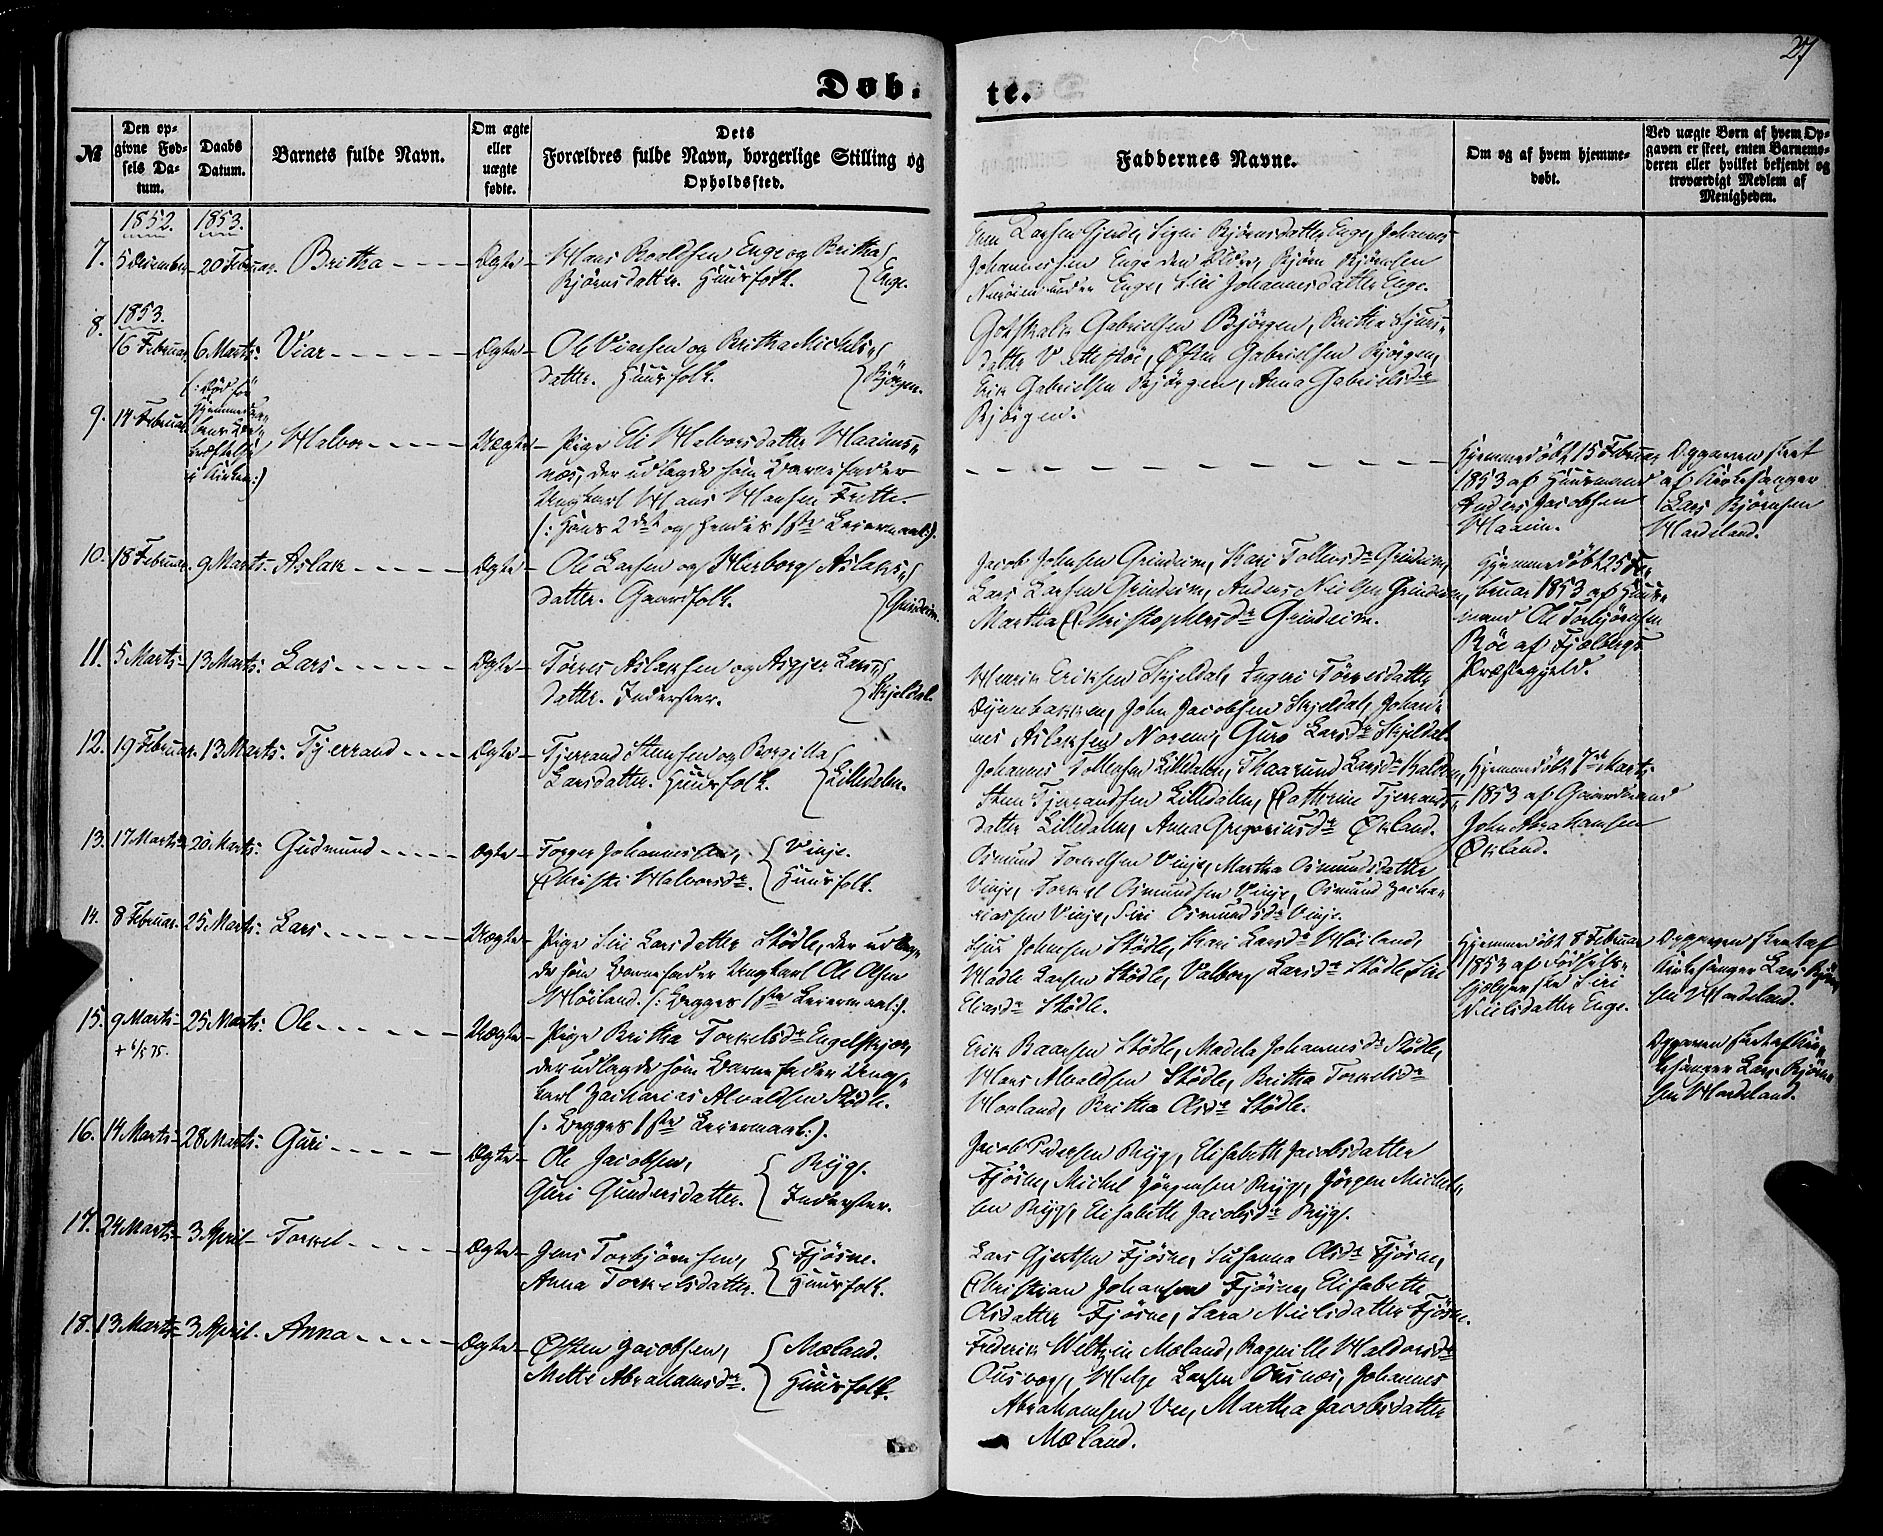 27
Døb- te.
№
Den opgivne Fødsels Datum.
Daabs Datum.
Barnets fulde Navn.
Om ægte eller uægte fødte.
Dets Forældres fulde Navn, borgerlige Stilling og Opholdssted.
Faddernes Navne.
Om og af hvem hjemmedøbt.
Ved uægte Børn af hvem Opgaven er skeet, enten Barnemoderen eller hvilket bekjendt og troværdigt Medlem af Menigheden.
1852. 1853.
7. 5 December 20 Februar. Britha Ægte
Hans Roaldsen Enge og Britha
Bjørnsdatter. Huusfolk. Enge.
Larsen Gjerde, Signi Bjørnsdatter Enge, Johannes
Johannessen Enge den Ældre, Bjørn Bjørnsen
under Enge, Siri Johannesdatter Enge.
1853.
8. 16 Februar 6 Marts. Viar Ægte
Ole Viarsen og Britha Michels-
datter. Huusfolk. Bjørgen.
Gotskalk Gabrielsen Bjørgen, Britha Sjurs-
datter, Østen Gabrielsen Bjørgen,
Erik Gabrielsen Bjørgen, Anna Gabrielsdr
Bjørgen.
9. 14 Februar. Halvor Uægte
(: Død før
Hjemmedaa-
bens Be-
kræftelse
i Kirken:)
Pige Eli Halvorsdatter Haaims-
næs, der udlagde som Barnefader
Ungkarl Hans Hansen Frette.
(: Hans 2det og hendes 1ste Leiermaal:).
Hjemmedøbt 15 Februar
1853 af Huusmand
Anders Jacobsen
Haaim.
Opgaven skeet
af Kirkesanger
Lars Bjørnsen
Hardeland.
10. 18 Februar. 9 Marts Aslak Ægte
Ole Larsen og Herborg Aslaks-
datter. Gaardfolk. Grindeim.
Jacob Johnsen Grindeim, Kari Tollevsdr Grindeim,
Lars Larsen Grindeim, Anders Nielsen Grindeim,
Martha Christophersdr Grindeim.
Hjemmedøbt 25 Fe-
bruar 1853 af Huus-
mand Ole Torbjørnsen
Røe af Fjelbergs
Præstegjeld.
11. 5 Marts 13 Marts: Lars Ægte
Tørres Aslaksen og Asgjer Lars-
datter. Inderster. Skjeldal.
Henrik Eriksen Skjeldal, Ingeri Tørresdatter
John Jacobsen Skjeldal, Johan-
nes Aslaksen Norem, Guro Larsdr Skjeldal.
12. 19 Februar. 13 Marts. Tjerrand Ægte
Tjerrand Steensen og Borgilla
Larsdatter. Huusfolk. Lilledalen.
Johannes Tollefsen Lilledalen, Thaarund Larsdr
Steen Tjerrandsen Lilledalen, Cathrine Tjerrands-
datter Lilledalen, Anna Gregoriusdr Økland.
Hjemmedøbt 7de Marts
1853 af Gaardmand
John Abrahamsen
Økland.
13. 17 Marts 20 Marts: Gudmund Ægte
Torger Johannessen, Vinje.
Christi Halvorsdr. Huusfolk.
Osmund Torkelsen Vinje, Martha Osmundsdatter
Vinje, Torkel Osmundsen Vinje, Osmund Zacha-
riassen Vinje, Siri Osmundsdr Vinje.
14. 8 Februar. 25 Marts: Lars Uægte
Pige Siri Larsdatter Stødle, der udlag-
de som Barnefader Ungkarl Ole Olsen
Høiland. (: Begges 1ste Leiermaal:).
Sjur Johnsen Stødle, Kari Larsdr Høiland,
Larsen Stødle, Valborg Larsdr Stødle, Siri
Eliasdr Stødle.
Hjemmedøbt 8 Februar
1853 af Fødsels-
hjelperske Siri
Nielsdatter Enge.
Opgaven skeet af
Kirkesanger Lars Bjørn-
sen Hardeland.
15. 9 Marts 25 Marts: Ole Uægte
+ 6/5 75.
Pige Britha Torkelsdr Engelskjøn,
der udlagde som Barnefader Ung-
karl Zacharias Alvaldsen Stødle.
(: Begges 1ste Leiermaal:).
Erik Baarsen Stødle, Madela Johannesdr Stødle,
Hans Alvaldsen Stødle, Britha Torkelsdr
Haaland, Britha Olsdr Stødle.
Opgaven skeet af Kir-
kesanger Lars Bjørn-
sen Hardeland.
16. 14 Marts 28 Marts: Guri Ægte
Ole Jacobsen, Ryg.
Guri Gundersdatter. Inderster.
Jacob Pedersen Ryg, Elisabeth Jacobsdatter
Fjøsne, Michel Jørgensen Ryg, Jørgen Michel-
sen Ryg, Elisabeth Jacobsdr Ryg.
17. 24 Marts 3 April Torkel Ægte
Jens Torbjørnsen, Fjøsne.
Anna Torkelsdatter. Huusfolk.
Lars Gjertsen Fjøsne, Susanna Olsdr Fjøsne,
Christian Johansen Fjøsne, Elisabeth
Olsdatter Fjøsne, Sara Nielsdatter Fjøsne.
18. 13 Marts 3 April. Anna Ægte
Østen Jacobsen, Mæland.
Mette Abrahamsdr. Huusfolk.
Frederik Weltzin Mæland, Ragnille Haldorsdr
Ousvog, Helge Larsen Ousnæs, Johannes
Abrahamsen Ven, Martha Jacobsdatter
Mæland.